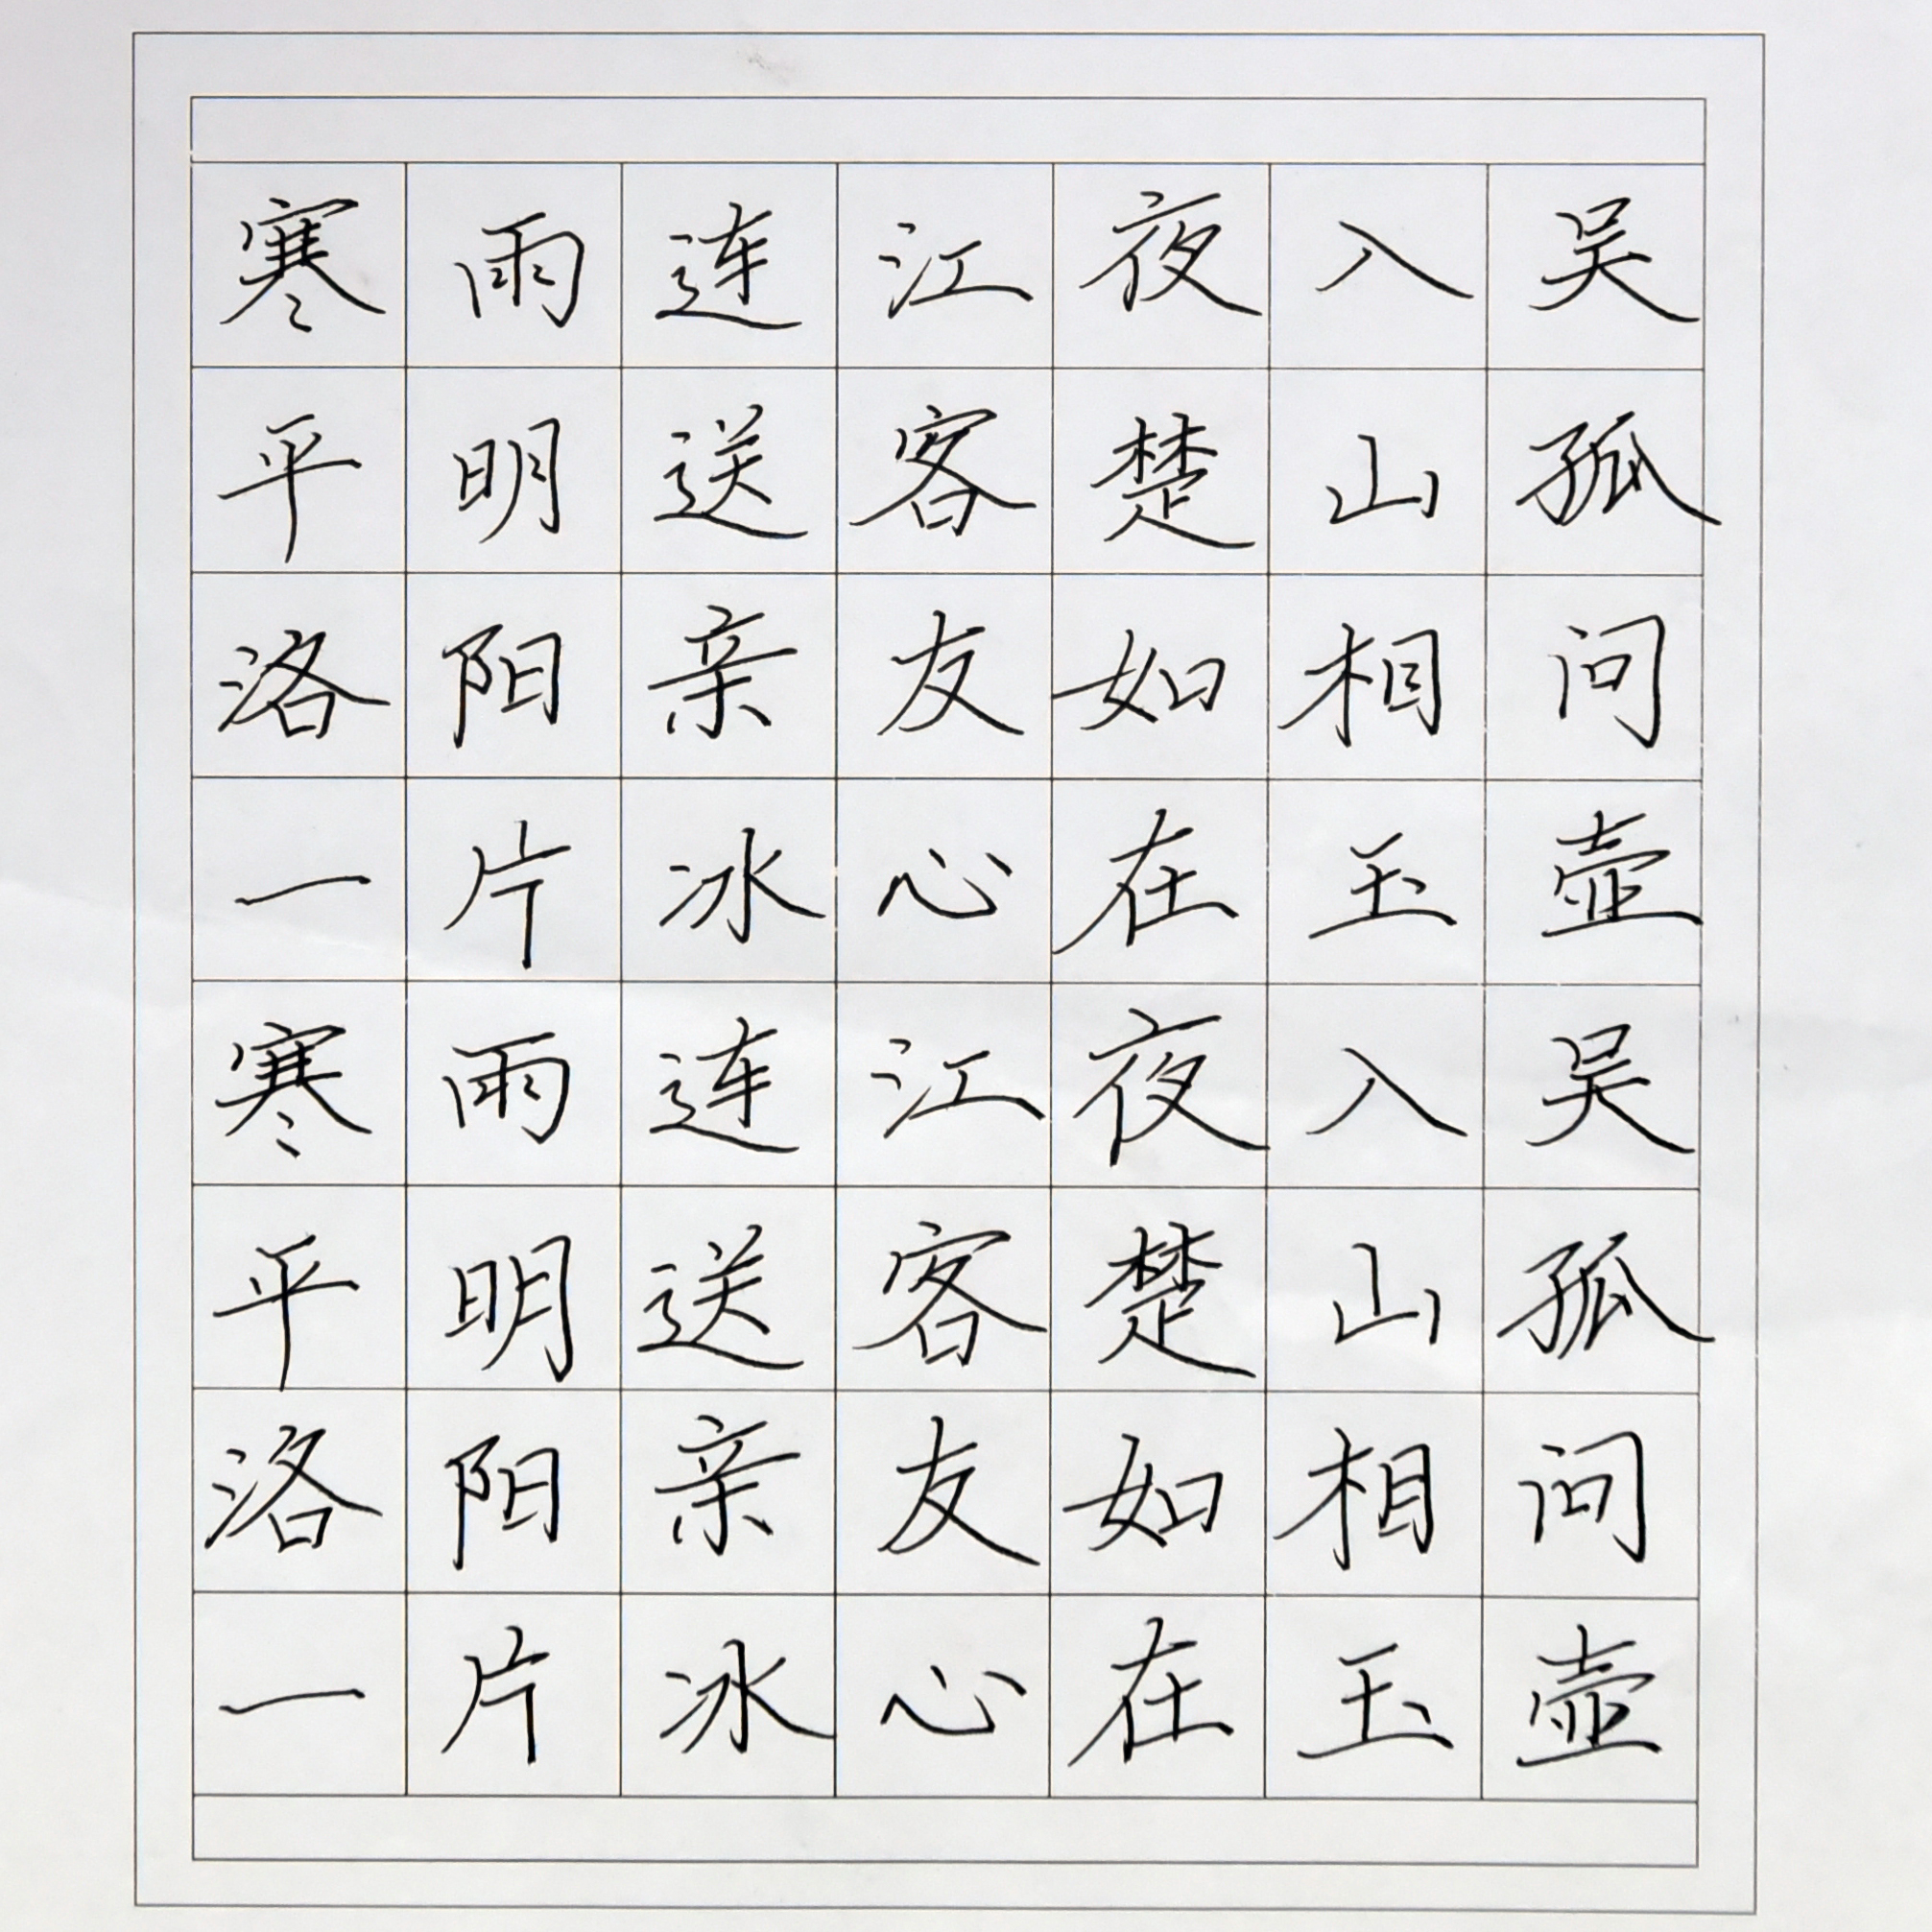 寒雨连江夜入吴
平明送客楚山孤
洛阳亲友如相问
一片冰心在玉壶
寒雨连江夜入吴
平明送客楚山孤
洛阳亲友如相问
一片冰心在玉壶